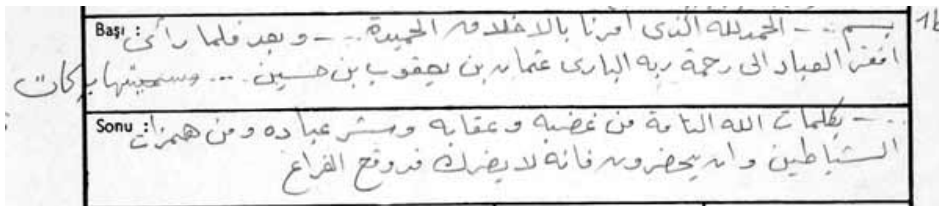 Başı: بسم... الحمد لله الذى امرنا بالاخلاق الحميدة... وبعد فلما رأى 16
افقر العباد الى رحمة ربه البارى عثمان بن يعقوب بن حسين... وسميتها بركات
Sonu: ... بكلمات الله التامة من غضبه وعقابه وشر عباده ومن همزات
الشياطين وان يحضرون فانه لا يضرك قد وقع الفراغ